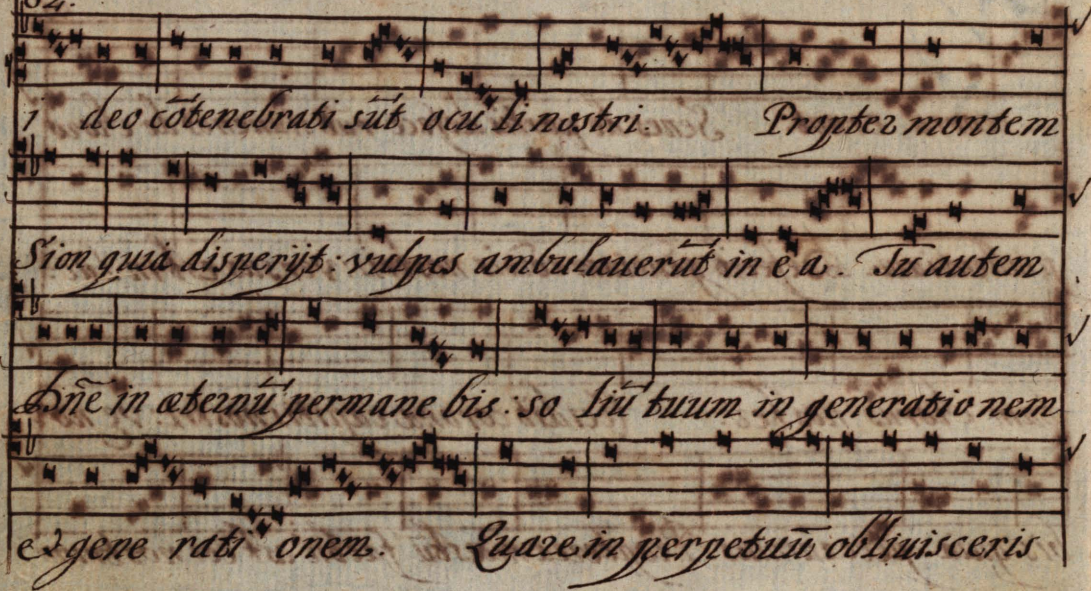 i deo cōtenebrati sūt ocu li nostri. Propter montem
Sion quia disperijt: vulpes ambulauerūt in e a. Tu autem
Dn̄e in æternū permane bis: so liū tuum in generatio nem
et gene rati onem. Quare in perpetuū obliuisceris